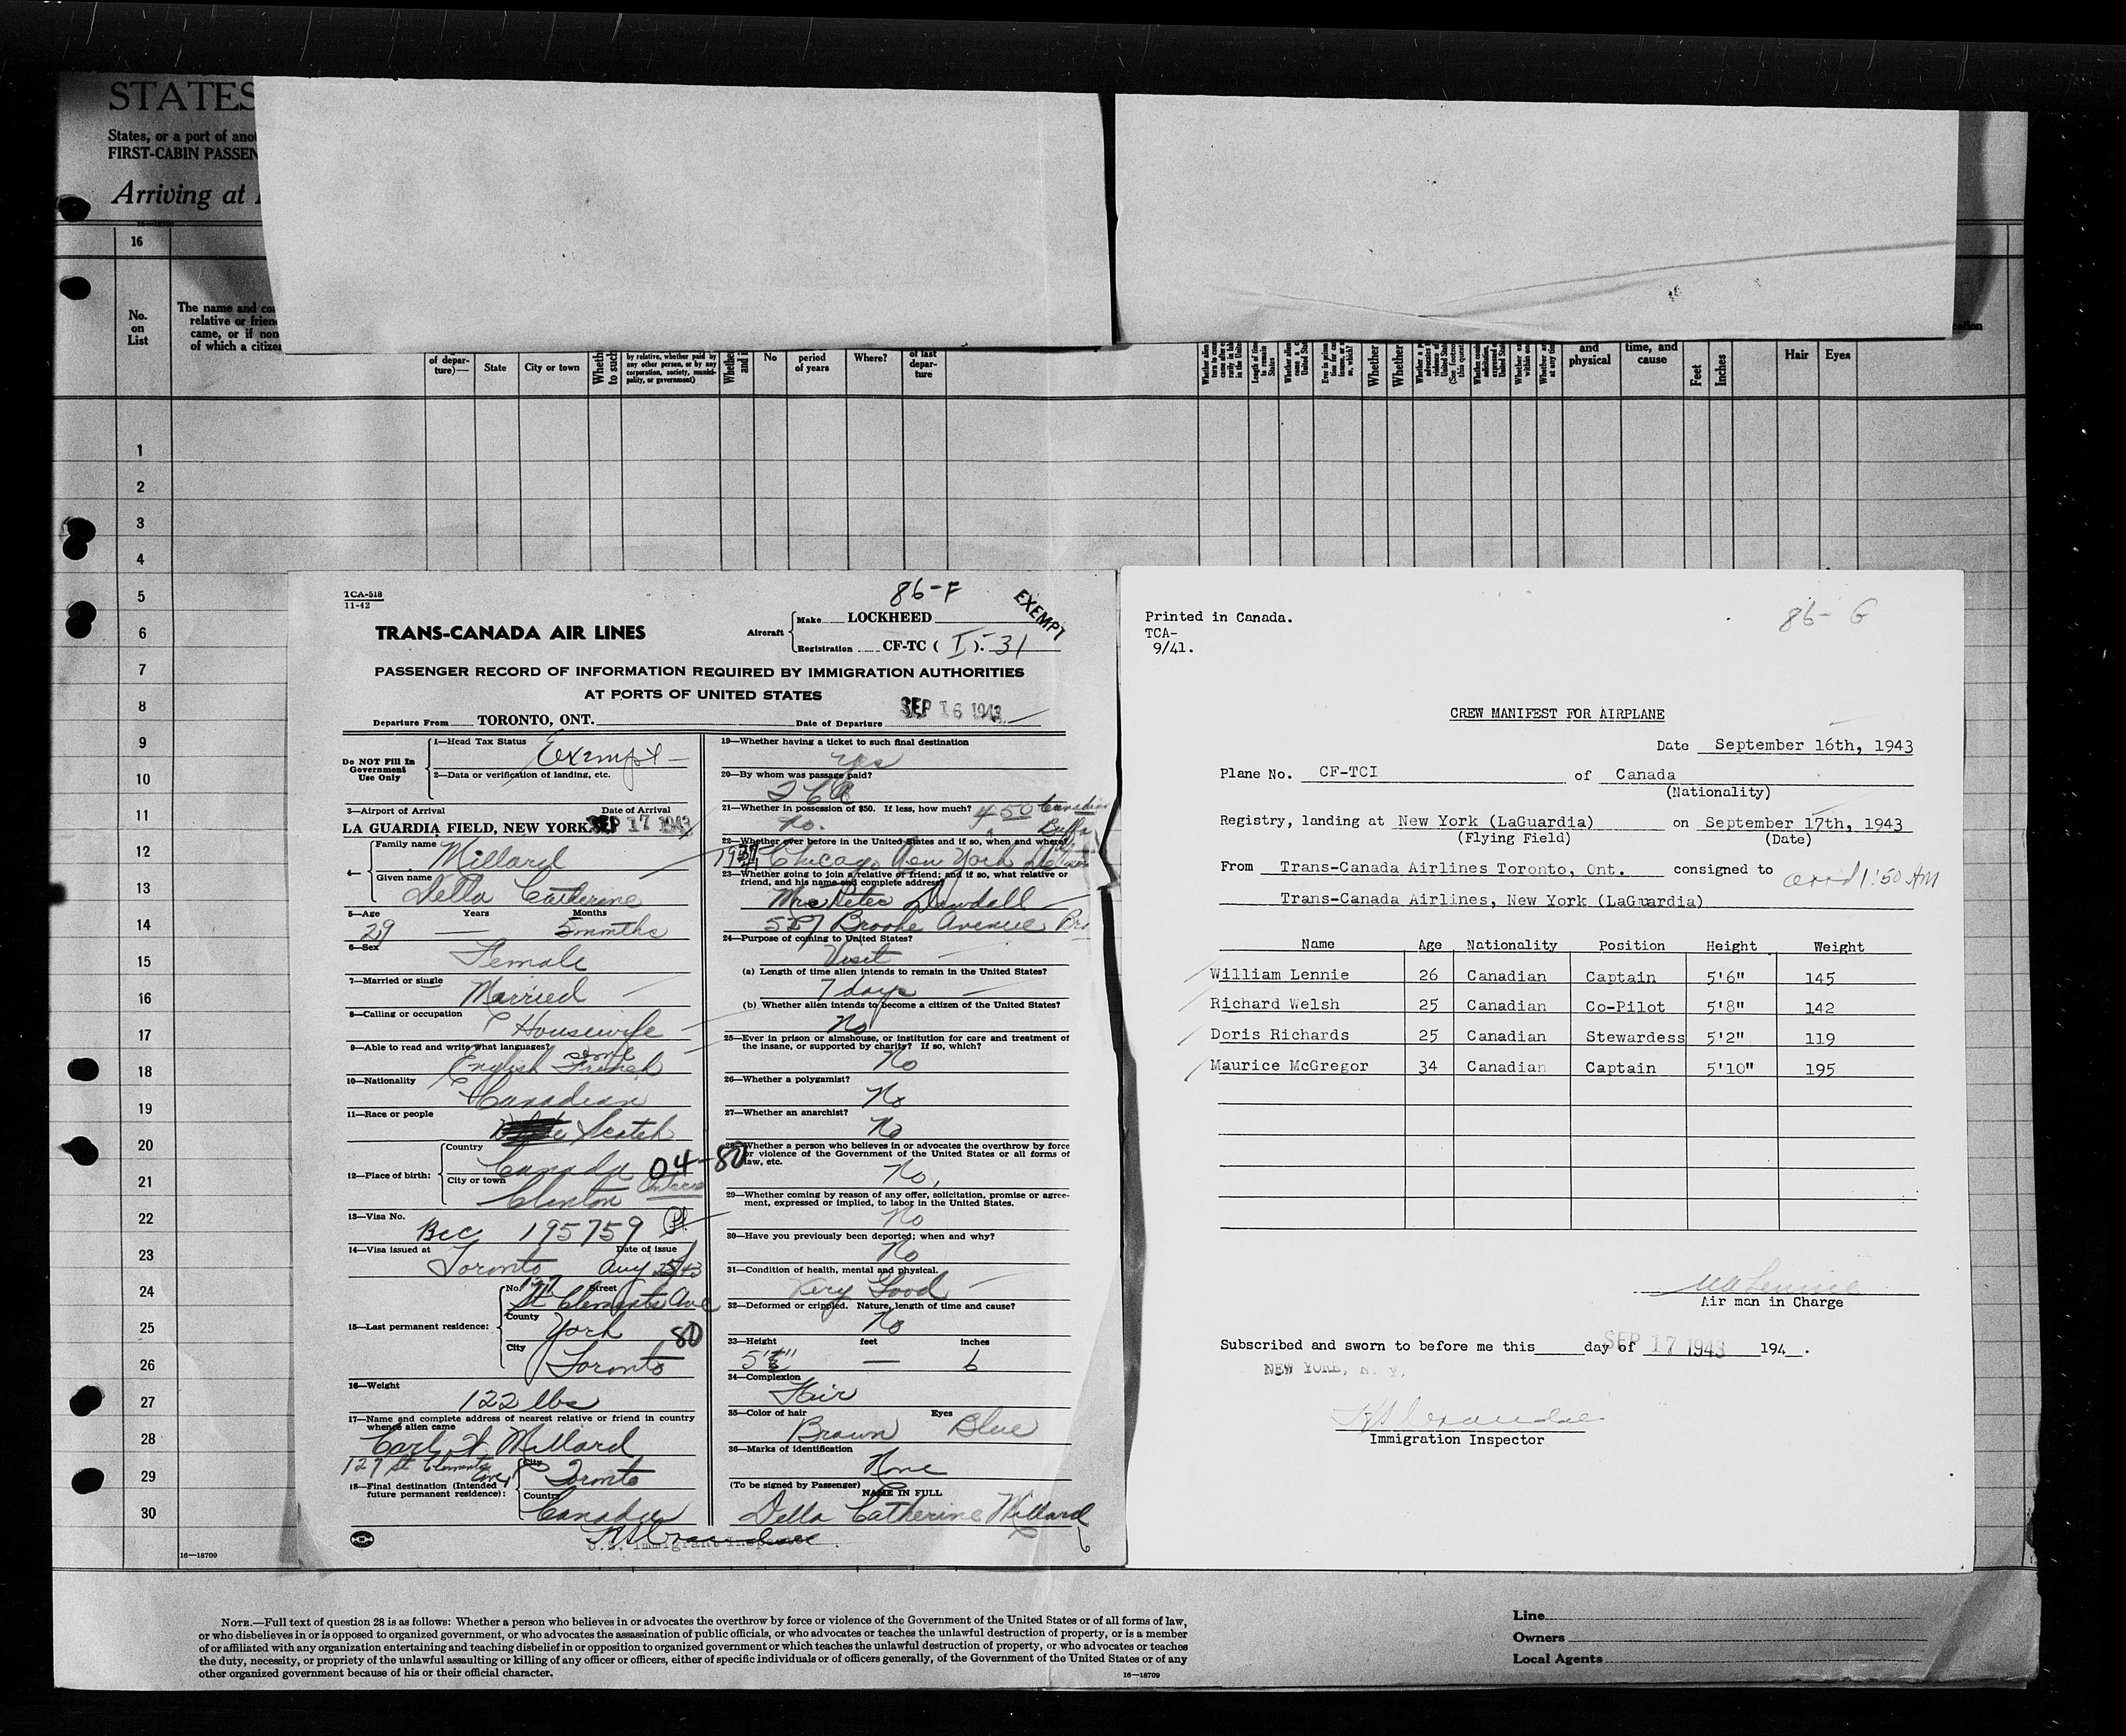 STATES
States, or a port of anot
FIRST-CABIN PASSEN
Arriving at
16
No.
on
List
The name and co
relative or frien
came, or if non
of which a citize
of depar-
ture)—
State
City or town
Wheth
to such
by relative, whether paid by
any other person, or by any
corporation, society, munici-
pality, or government)
Whethe
No
period
of years
Where?
of last
depar-
ture
Whether
Whether
and
physical
time, and
cause
Feet
Inches
Hair
Eyes
1
2
3
4
5
6
7
8
9
10
11
12
13
14
15
16
17
18
19
20
21
22
23
24
25
26
27
28
29
30
16—18709
TCA-518
11-42
86-F
EXEMPT
TRANS-CANADA AIR LINES
Aircraft
Make LOCKHEED
Registration CF-TC ( I ). 31
PASSENGER RECORD OF INFORMATION REQUIRED BY IMMIGRATION AUTHORITIES
AT PORTS OF UNITED STATES
Departure From TORONTO, ONT. Date of Departure SEP 16 1943
Do NOT Fill In
Government
Use Only
1—Head Tax Status Exempt
2—Data or verification of landing, etc.
3—Airport of Arrival Date of Arrival
LA GUARDIA FIELD, NEW YORK SEP 17 1943
4—
Family name Millard
Given name
Della Catherine
5—Age Years Months
29 — 5 months
6—Sex
Female
7—Married or single
Married
8—Calling or occupation
Housewife
9—Able to read and write what languages?
English some French
10—Nationality
Canadian
11—Race or people
Scotch
12—Place of birth:
Country
Canada 04-80
City or town
Clinton Ontario
13—Visa No.
Bcc 195759
14—Visa issued at Date of issue
Toronto Aug 25/43
15—Last permanent residence:
No. 127 Street
St Clements Ave
County
York 80
City
Toronto
16—Weight
122 lbs
17—Name and complete address of nearest relative or friend in country
whence alien came
Carl Millard
127 St. Clements Ave
18—Final destination (Intended
future permanent residence):
City
Toronto
Country
Canada
U.S. Immigrant Inspector
19—Whether having a ticket to such final destination
Yes
20—By whom was passage paid?
T C A
21—Whether in possession of $50. If less, how much? $50 Canadian
No.
22—Whether ever before in the United States and if so, when and where?
Chicago New York
23—Whether going to join a relative or friend; and if so, what relative or
friend, and his name and complete address?
Mrs Peter Dowdall
527 Brooke Avenue
24—Purpose of coming to United States?
Visit
(a) Length of time alien intends to remain in the United States?
7 days
(b) Whether alien intends to become a citizen of the United States?
No
25—Ever in prison or almshouse, or institution for care and treatment of
the insane, or supported by charity? If so, which?
No
26—Whether a polygamist?
No
27—Whether an anarchist?
No
28—Whether a person who believes in or advocates the overthrow by force
or violence of the Government of the United States or all forms of
law, etc.
No,
29—Whether coming by reason of any offer, solicitation, promise or agree-
ment, expressed or implied, to labor in the United States.
No
30—Have you previously been deported; when and why?
No
31—Condition of health, mental and physical.
Very Good
32—Deformed or crippled. Nature, length of time and cause?
No
33—Height feet inches
5 — 6
34—Complexion
Fair
35—Color of hair Eyes
Brown Blue
36—Marks of identification
None
(To be signed by Passenger) NAME IN FULL
Della Catherine Millard
Printed in Canada.
TCA-
9/41.
86-G
CREW MANIFEST FOR AIRPLANE
Date September 16th, 1943
Plane No. CF-TCI of Canada
(Nationality)
Registry, landing at New York (LaGuardia) on September 17th, 1943
(Flying Field) (Date)
From Trans-Canada Airlines Toronto, Ont. consigned to arrd 1:50 AM
Trans-Canada Airlines, New York (LaGuardia)
Name Age Nationality Position Height Weight
William Lennie 26 Canadian Captain 5'6" 145
Richard Welsh 25 Canadian Co-Pilot 5'8" 142
Doris Richards 25 Canadian Stewardess 5'2" 119
Maurice McGregor 34 Canadian Captain 5'10" 195
Air man in Charge
Subscribed and sworn to before me this day of SEP 17 1943 194 .
NEW YORK, N. Y.
Immigration Inspector
NOTE.—Full text of question 28 is as follows: Whether a person who believes in or advocates the overthrow by force or violence of the Government of the United States or of all forms of law,
or who disbelieves in or is opposed to organized government, or who advocates the assassination of public officials, or who advocates or teaches the unlawful destruction of property, or is a member
of or affiliated with any organization entertaining and teaching disbelief in or opposition to organized government or which teaches the unlawful destruction of property, or who advocates or teaches
the duty, necessity, or propriety of the unlawful assaulting or killing of any officer or officers, either of specific individuals or of officers generally, of the Government of the United States or of any
other organized government because of his or their official character.
16—18709
Line
Owners
Local Agents